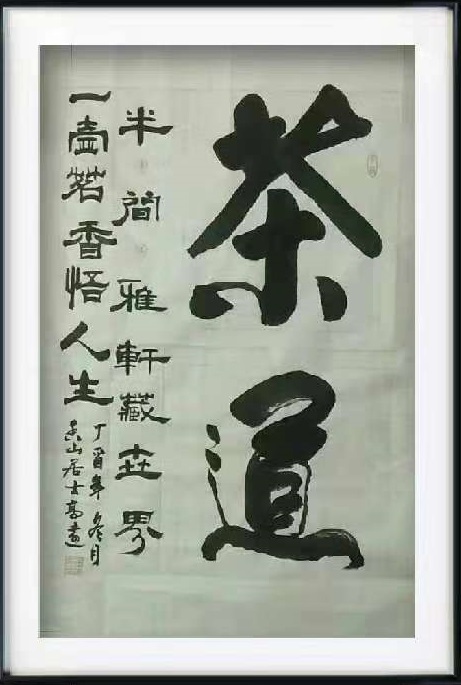 茶道
半間雅軒藏世界
一壺茗香悟人生
丁酉年冬月
山居士高